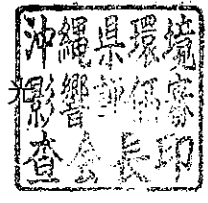 沖縄県環境
影響評価審
査会長印